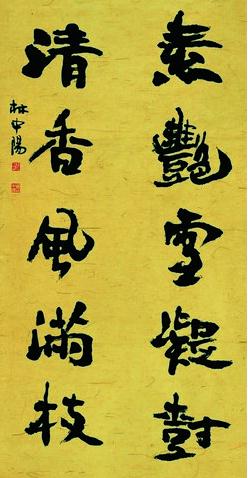 素豔雪凝樹
清香風滿枝
林中陽